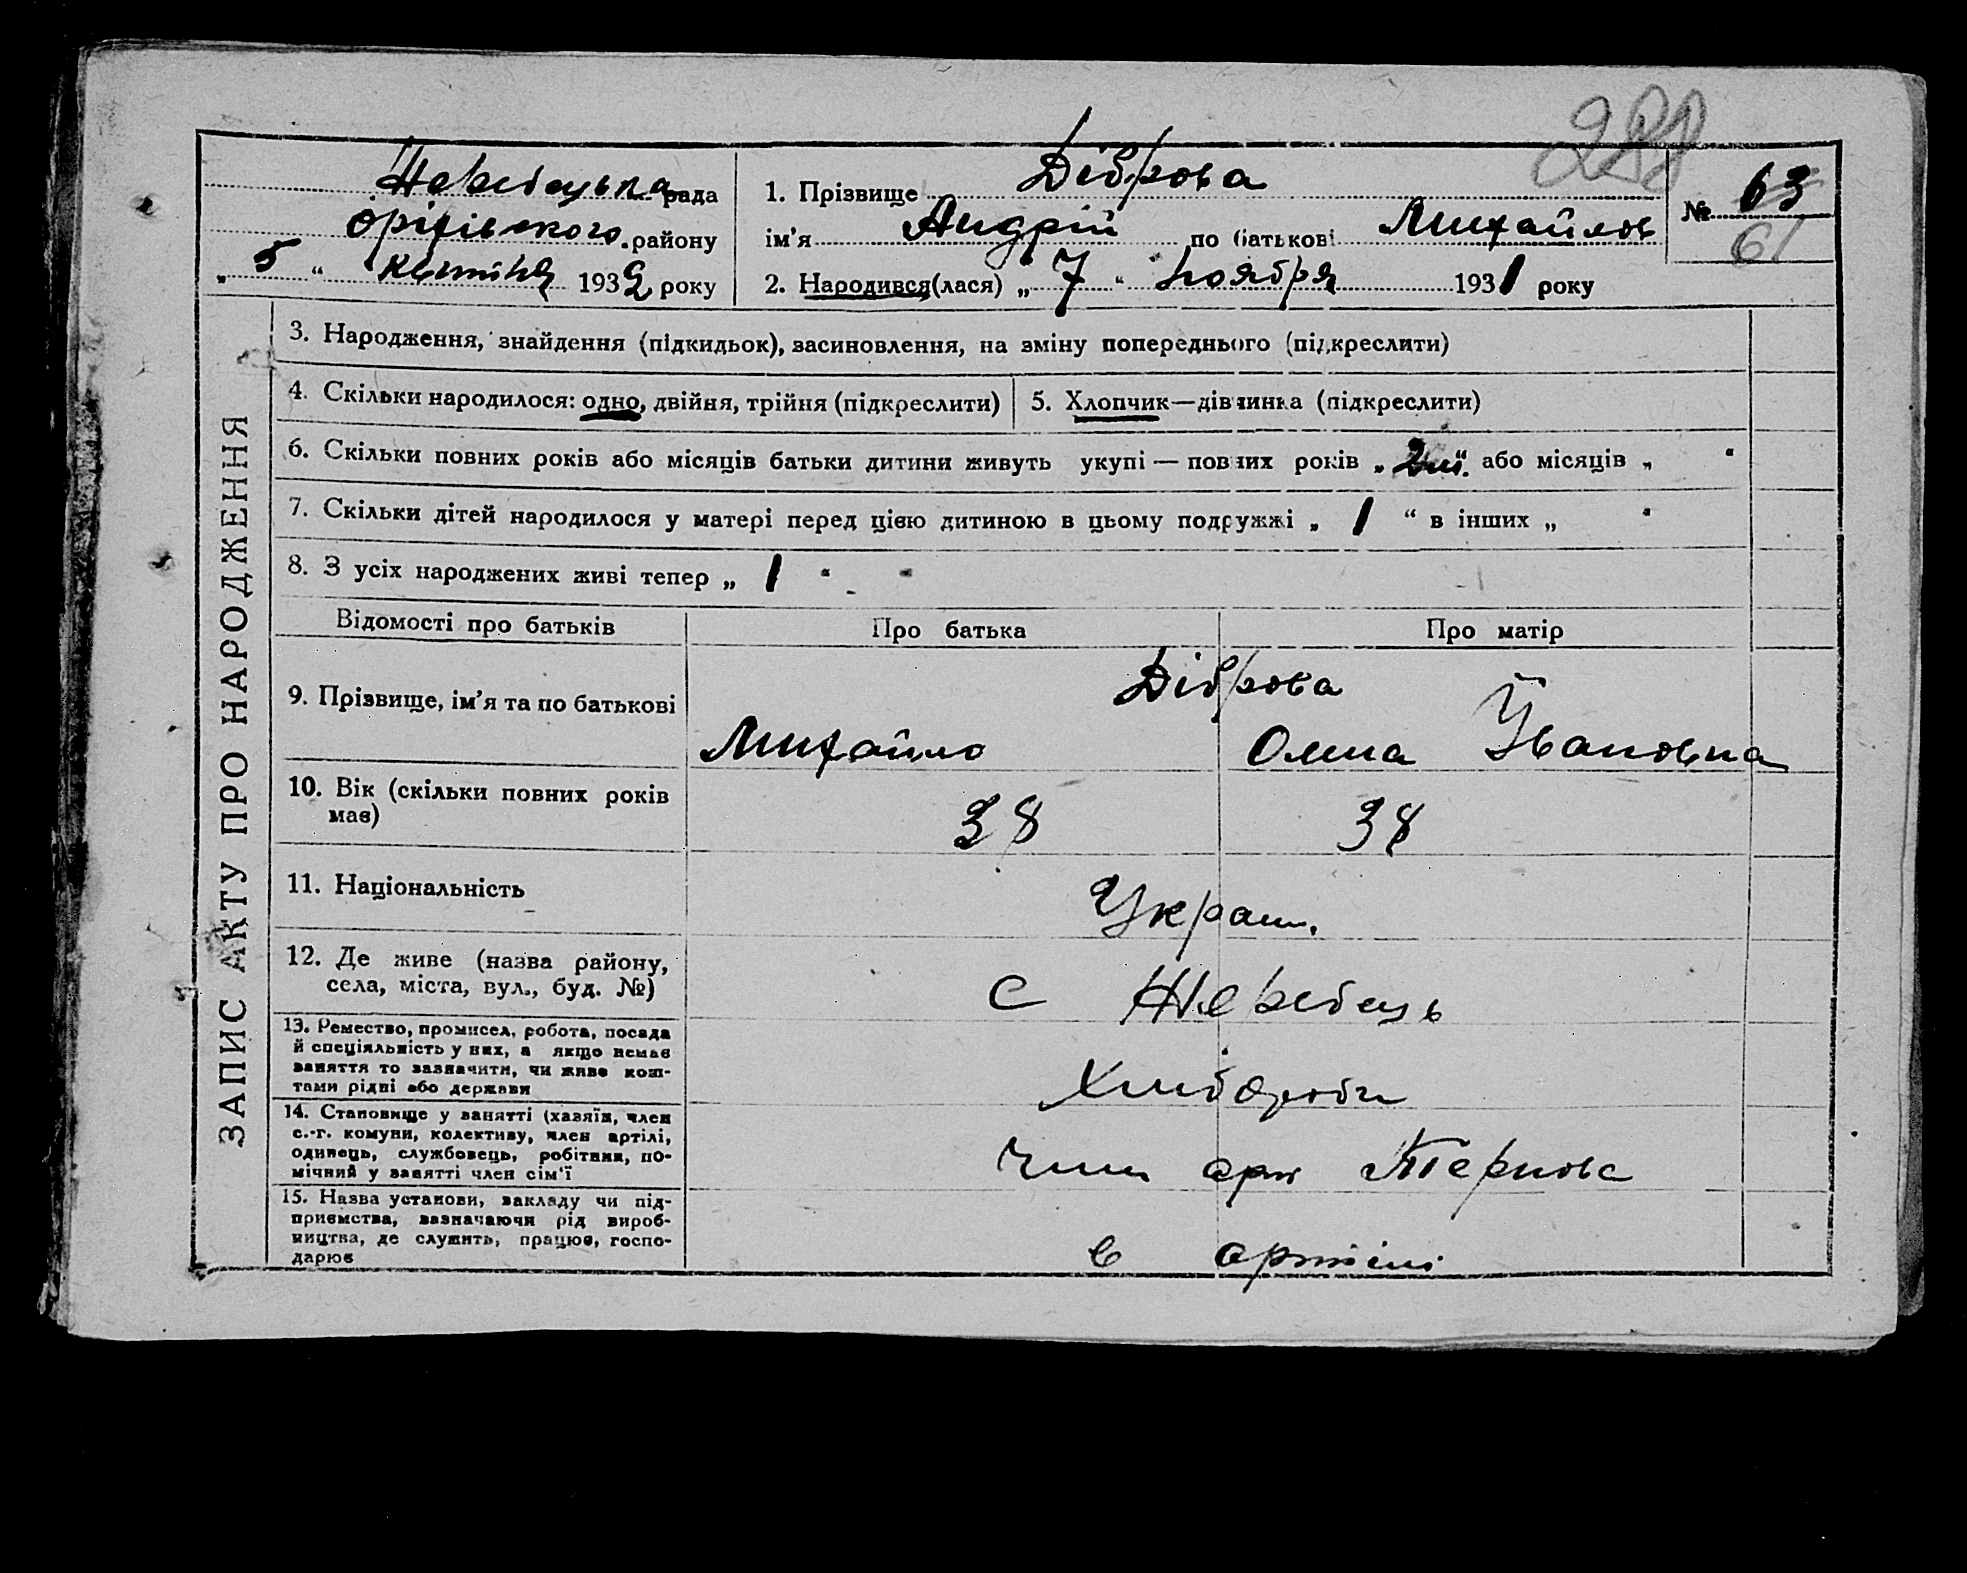 288
Жеребецька рада
Оріхівського району
„ 5 “ квітня 1932 року
1. Прізвище Діброва
ім'я Андрій по батькові Михайлов
2. Народився(лася) „ 7 “ ноября 1931 року
№ 63
61
ЗАПИС АКТУ ПРО НАРОДЖЕННЯ
3. Народження, знайдення (підкидьок), засиновлення, на зміну попереднього (підкреслити)
4. Скільки народилося: одно, двійня, трійня (підкреслити)
5. Хлопчик—дівчинка (підкреслити)
6. Скільки повних років або місяців батьки дитини живуть укупі — повних років „ “ або місяців „ “
7. Скільки дітей народилося у матері перед цією дитиною в цьому подружжі „ 1 “ в інших „ “
8. З усіх народжених живі тепер „ 1 “
Відомості про батьків Про батька Про матір
9. Прізвище, ім'я та по батькові
Діброва
Михайло Олена Івановна
10. Вік (скільки повних років
має)
38 38
11. Національність
Украин.
12. Де живе (назва району,
села, міста, вул., буд. №)
с Жеребець
13. Ремество, промисел, робота, посада
й спеціяльність у них, а якщо немає
заняття то зазначити, чи живе кош-
тами рідні або держави
Хлібороби
14. Становище у занятті (хазяїн, член
с.-г. комуни, колективу, член артілі,
одинець, службовець, робітник, по-
мічний у занятті член сім'ї
член арт
15. Назва установи, закладу чи під-
приємства, зазначаючи рід вироб-
ництва, де служить, працює, госпо-
дарює
в артілі